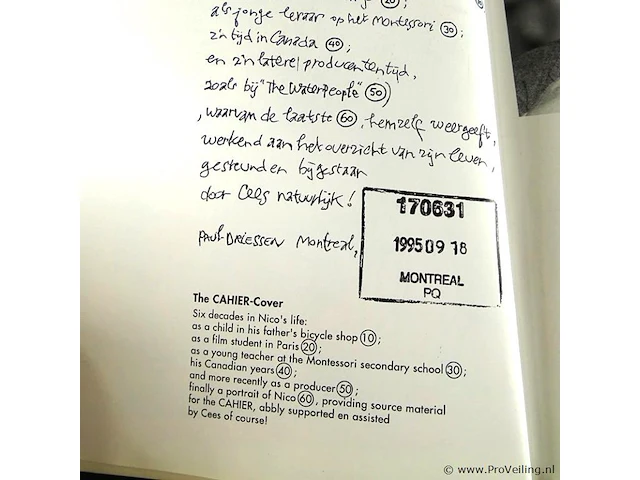 20
als jonge leraar op het Montessori 30 ;
z'n tijd in Canada 40 ;
en z'n latere producententijd,
zoals bij "The Waterpeople" 50 )
, waarvan de laatste 60 , hemzelf weergeeft,
werkend aan het overzicht van zijn leven,
gesteund en bijgestaan
door Cees natuurlijk!
PAUL DRIESSEN Montreal,
170631
1995 09 18
MONTREAL
PQ
The CAHIER-Cover
Six decades in Nico's life:
as a child in his father's bicycle shop 10 ;
as a film student in Paris 20 ;
as a young teacher at the Montessori secondary school 30 ;
his Canadian years 40 ;
and more recently as a producer 50 ;
finally a portrait of Nico 60 , providing source material
for the CAHIER, abbly supported en assisted
by Cees of course!
© www.ProVeiling.nl